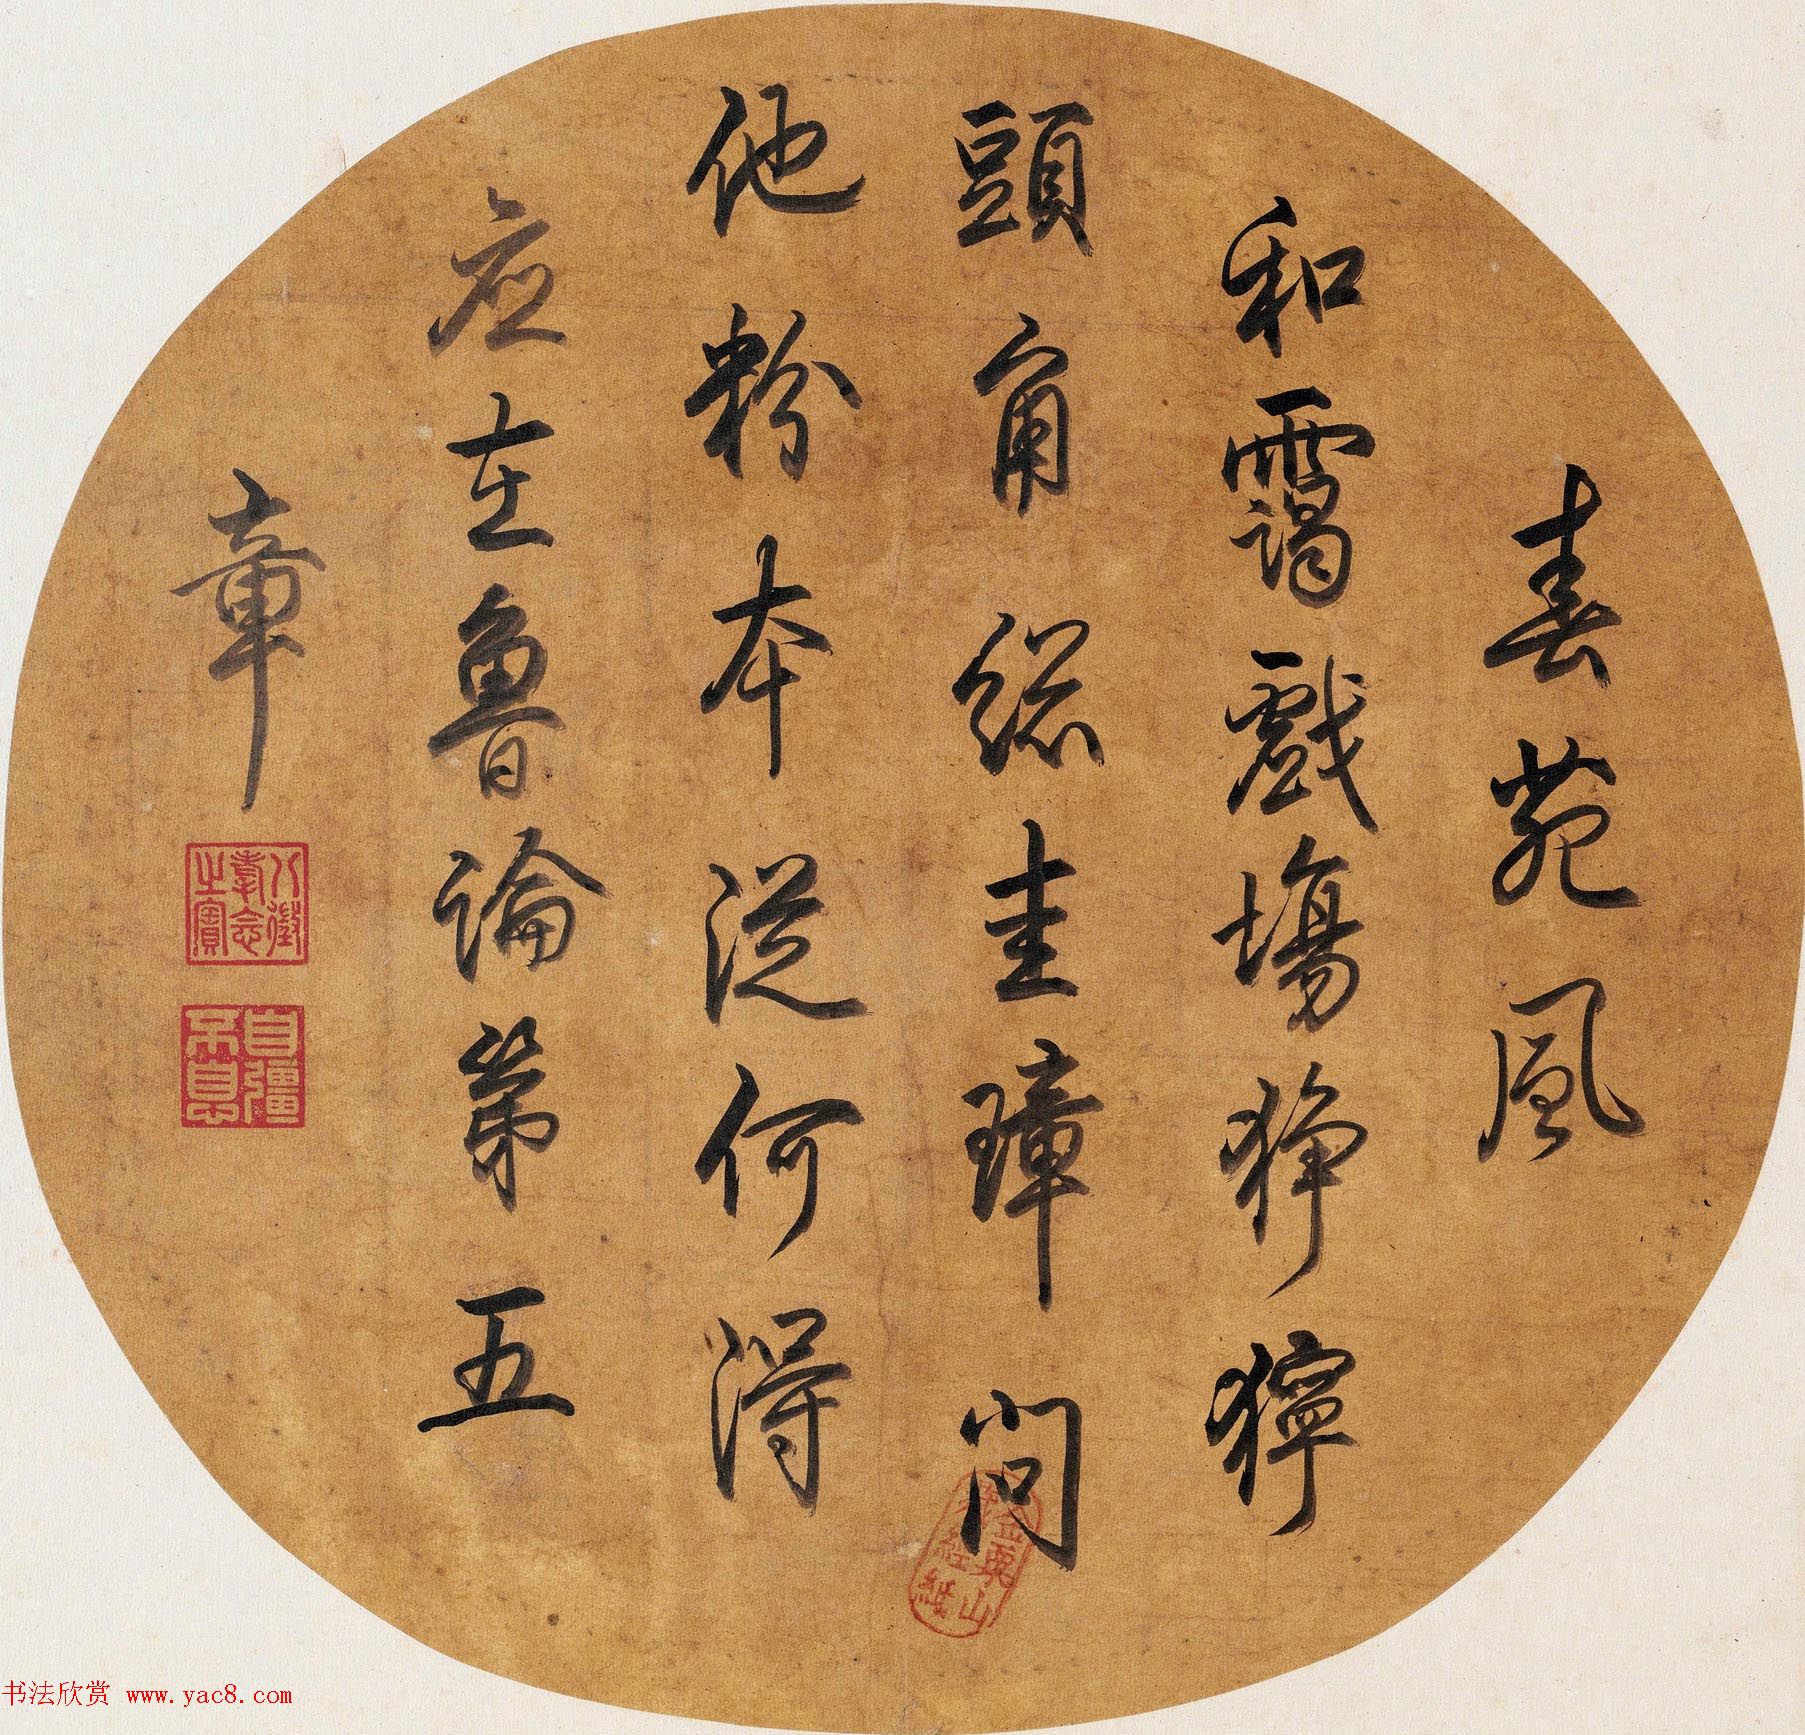 春苑風
和靄戲場猙獰
頭角總圭璋問
他粉本從何得
應在魯論第五
章
八徵耄念之寶
自彊不息
金粟山藏經紙
书法欣赏 www.yac8.com